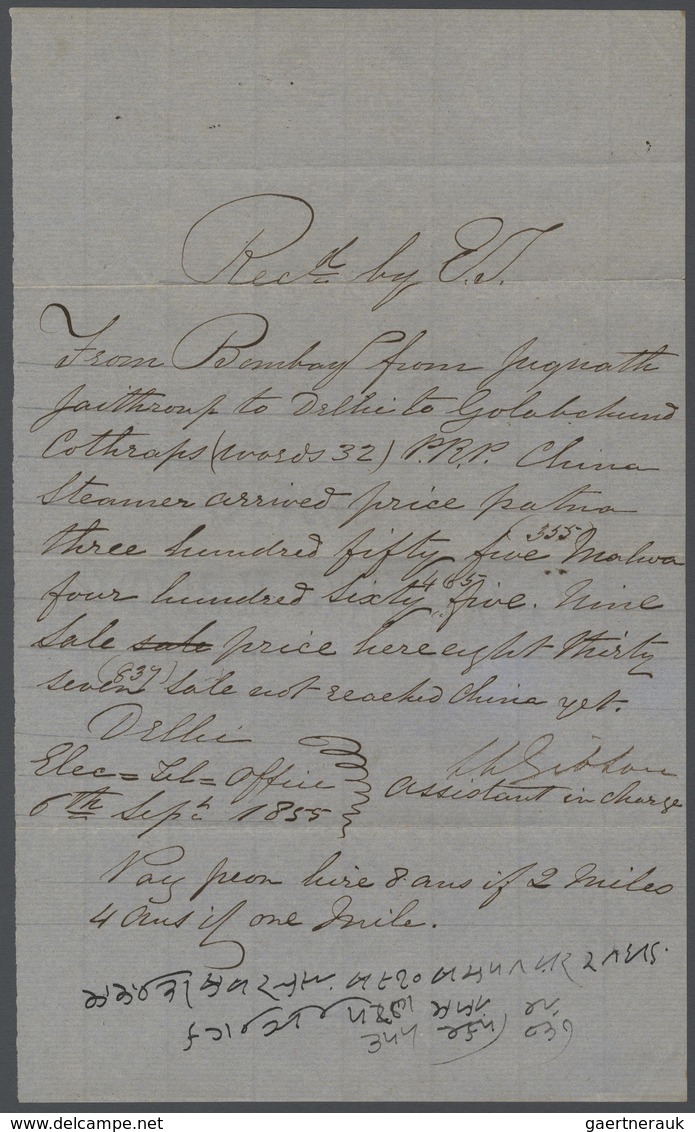 Recd by E.T.
From Bombay from Jugnath
Jaithroup to Delhi to Golabchund
Cothraps (words 32) P.R.P. China
Steamer arrived price patna
three hundred fifty five (355) Malwa
four hundred sixty five (465). Nine
Sale sale price here eight thirty
seven (837) sale not reached China yet.
Delhi
Elec = Tel = Office
6th Sept 1855
Gibbon
Assistant in charge
Pay peon hire 8 ans if 2 Miles
4 ans if one Mile.
delcampe.net
gaertnerauk